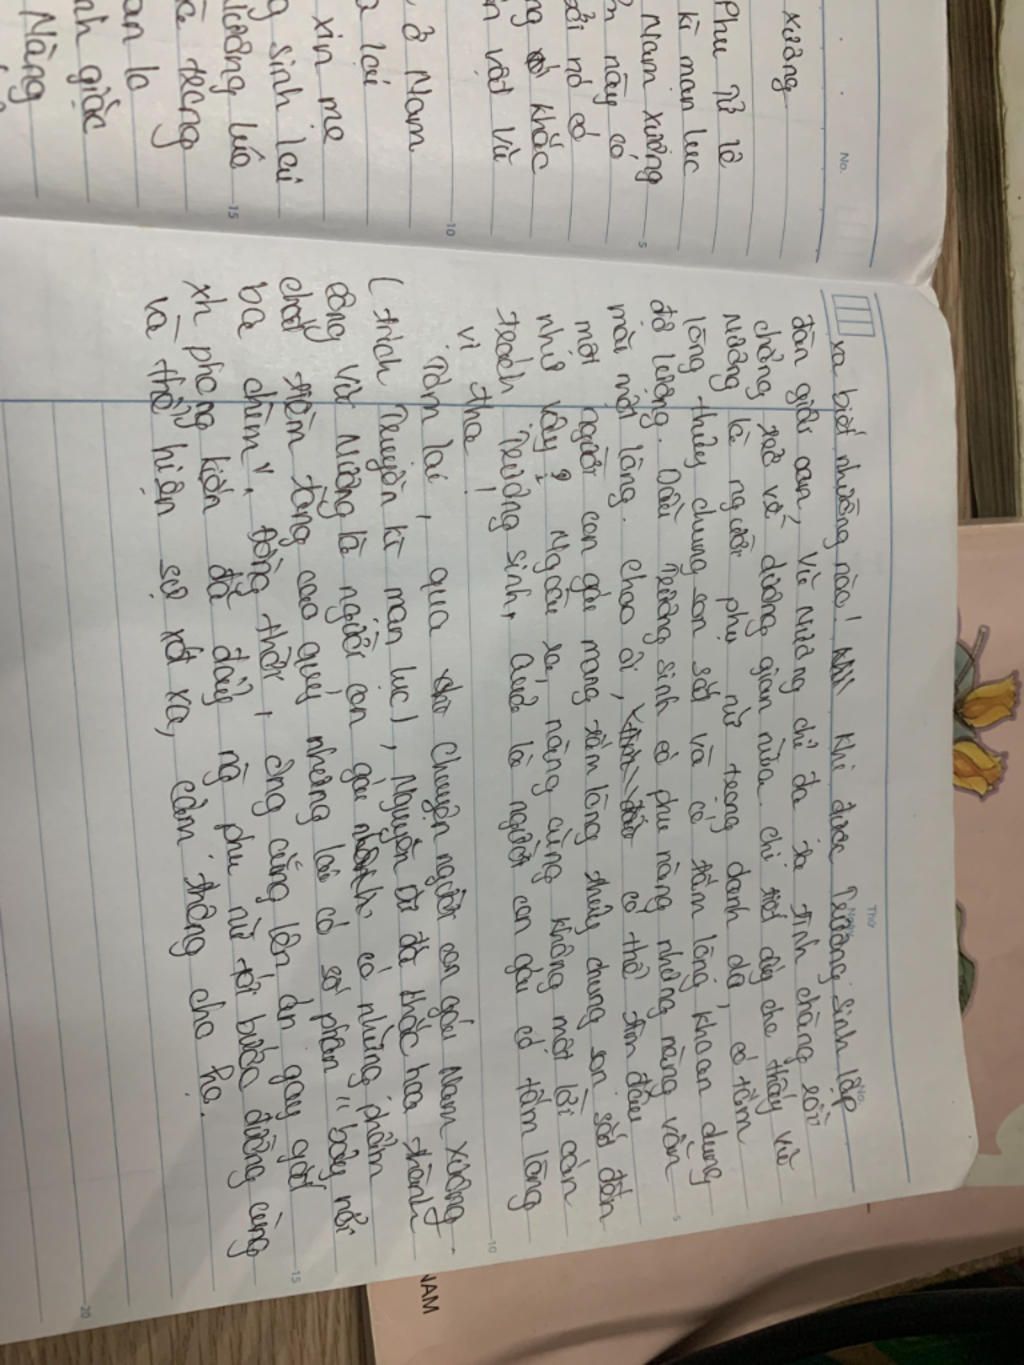 xương
Phu Tử là
kì mạn lục
Nam xương
này có
nó có
khắc
vật và
ở Nam
lại
xin mẹ
sinh lại
lương lúc
trong
an la
nh giặc
Nàng
xa biết nhường nào! Khi được Trương Sinh lập
đàn giải oan, Vũ Nương chỉ đa tạ tình chàng rồi
chẳng trở về dương gian nữa. chi tiết ấy cho thấy Vũ
Nương là người phụ nữ trọng danh dự, có tấm
lòng thủy chung son sắt và có tấm lòng khoan dung
độ lượng. Dẫu Trương Sinh có phụ nàng nhưng nàng vẫn
mãi một lòng. Chao ôi, có thể tìm đâu
một người con gái mang tấm lòng thủy chung son sắt đến
như vậy? Ngoài ra, nàng cũng không một lời oán
trách Trương Sinh, quả là người con gái có tấm lòng
vị tha!
Tóm lại, qua chuyện người con gái Nam xương
(trích Truyền kì mạn lục), Nguyễn Dữ đã khắc họa thành
công Vũ Nương là người con gái có những phẩm
chất trong cao quý nhưng lại có số phận " bảy nổi
ba chìm". Đồng thời, ông cũng lên án gay gắt
xh phong kiến đã đẩy ng phụ nữ tới bước đường cùng
và thể hiện sự xót xa, cảm thông cho họ.
No.
Thứ
No.
5
10
15
5
10
15
20
NAM